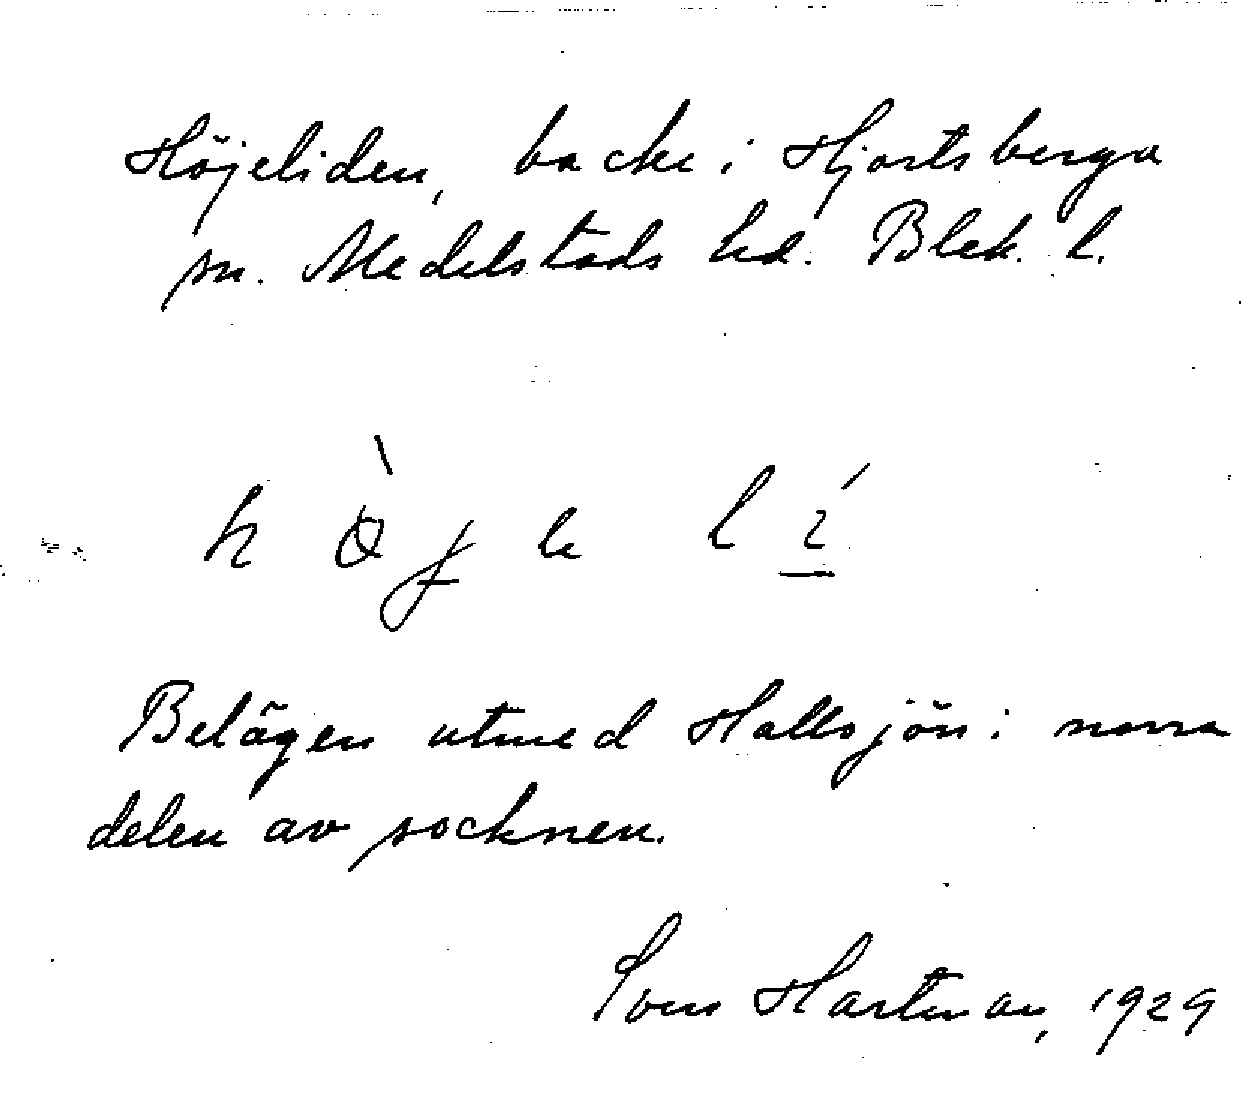 Höjeliden, backe i Hjortsberga
sn. Medelstads hd. Blek. l.
Belägen utmed Hallsjön i norra
delen av socknen.
Sven Hartman, 1929